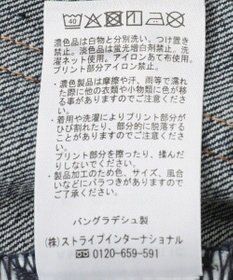 40
濃色品は白物と分別洗い。つけ置き
禁止。淡色品は蛍光増白剤禁止。洗
濯ネット使用。アイロンあて布使用。
プリント部分アイロン禁止。
・濃色製品は摩擦や汗、雨等で濡れ
た際に他の衣類や小物類に色が移
る事がありますのでご注意ください。
・着用や洗濯によりプリント部分が
ひび割れたり、部分的に脱落する
ことがありますのでご注意くださ
い。
・プリント部分を擦ったり、揉んだ
りしないでください。
・製品加工のため色、サイズ、風合
いなどにバラつきがありますので
ご了承ください。
バングラデシュ製
(株)ストライプインターナショナル
☏ 0120-659-591